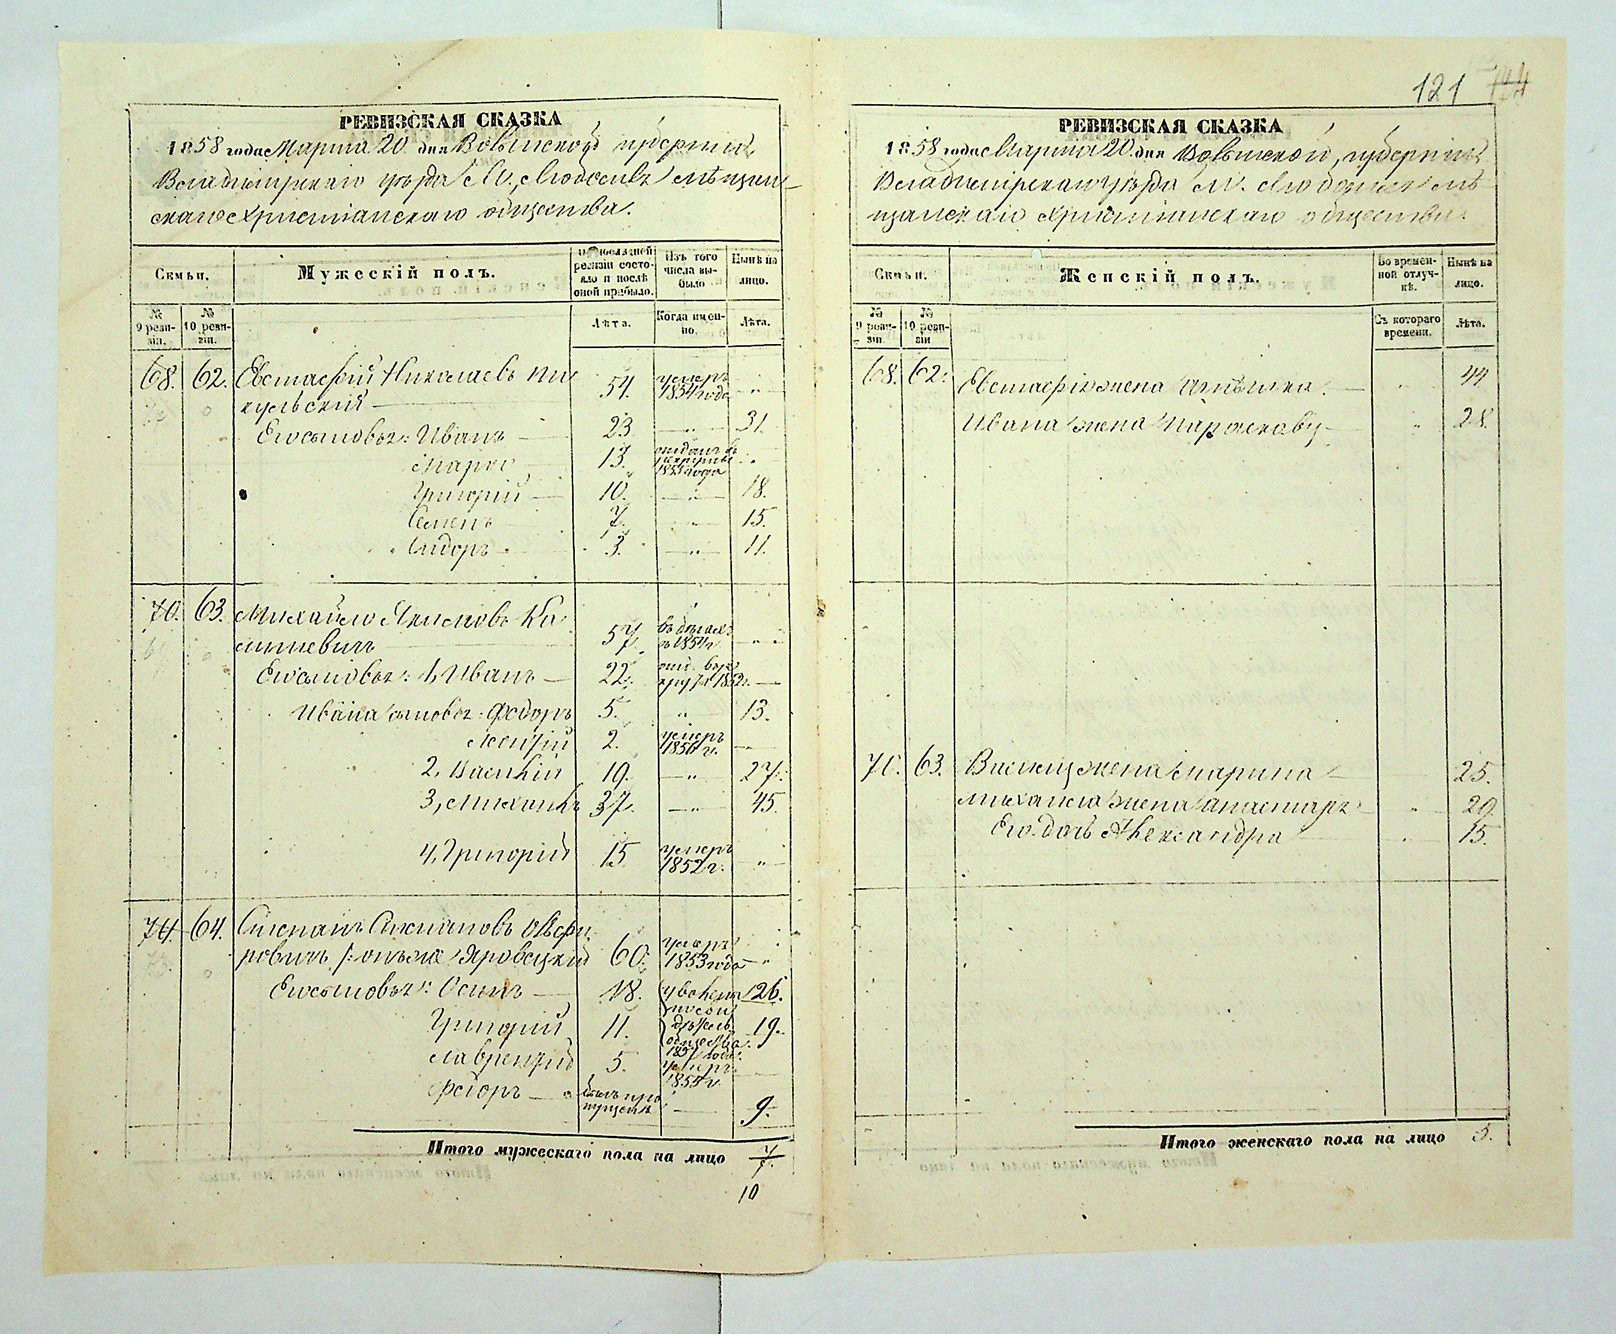 121
РЕВИЗСКАЯ СКАЗКА
1858 года Марта 20 дня Волынской губерніи,
Владимірскаго уѣзда М. Любомль мѣщан-
скаго христіанскаго общества.
Семьи.
Мужескій полъ.
По последней ревизіи состояло и послѣ оной прибыло.
Изъ того числа выбыло
Нынѣ на лицо.
№ 9 ревизіи.
№ 10 ревизіи.
Лѣта.
Когда именно.
Лѣта.
68. 62. Евстафій Николаевъ
кульскій 54. умеръ 1854 года „
Его сыновья: Иванъ 23 „ 31.
Марко 13. 1855 года „
Григорій 10. „ 18.
Семенъ 7. 15.
Сидоръ 3. „ 11.
70. 63. Михайло Якимовъ Ка
линевичъ 57. въ бѣгахъ съ 1854 г. „
Его сыновья: 1, Иванъ 22. 1852 г.
Ивана сыновья: Федоръ 5. „ 13.
2. умеръ 1850 г.
2, Василій 19. „ 27.
3, Михаилъ 37. „ 45.
4, Григорій 15. умеръ 1852 г. „
71. 64. Степанъ Степановъ
ровичъ онъ же Яровецкій 60. умеръ 1853 года „
Его сыновья: Осипъ 18. 26.
Григорій 11. общества 1857 года. 19.
Лаврентій 5. умеръ 1855 г.
Федоръ былъ пропущенъ 9.
Итого мужескаго пола на лицо 7
7.
10
РЕВИЗСКАЯ СКАЗКА
1858 года Марта 20 дня Волынской, губерніи
Владимірскаго уѣзда М. Любомль мѣ-
щанскаго христіанскаго общества.
Семьи.
Женскій полъ.
Во временной отлучкѣ.
Нынѣ на лицо.
№ 9 ревизіи
№ 10 ревизіи
Съ котораго времени.
Лѣта.
68. 62. Евстафія жена 44
Ивана жена Параскева „ 28.
70. 63. Василія жена Марина 25.
Михаила жена „ 29.
Его дочь Александра 15.
Итого женскаго пола на лицо 5.